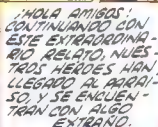 ¡HOLA AMIGOS!
CONTINUANDO CON
ESTE EXTRAORDINA-
RIO RELATO, NUES-
TROS HEROES HAN
LLEGADO AL PARAI-
SO, Y SE ENCUEN-
TRAN CON ALGO
EXTRAÑO.